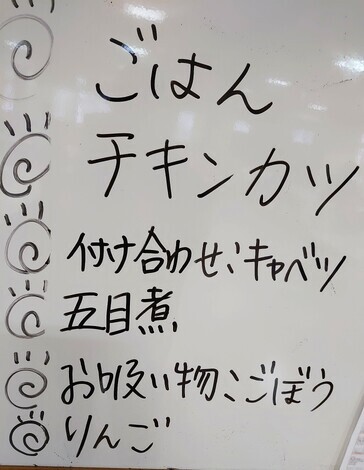 ごはん
チキンカツ
付け合わせ:キャベツ
五目煮
お吸い物:ごぼう
りんご